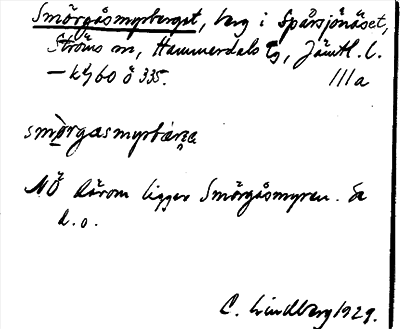 Smörgåsmyrberget, berg i Spårsjönäset,
Ströms sn, Hammerdals tg, Jämtl. l.
– kfl, 60 ö 335. IIIa
smòrgasmyrbærɪa
NÖ därom ligger Smörgåsmyren. Se
d. o.
C. Lindberg 1929.